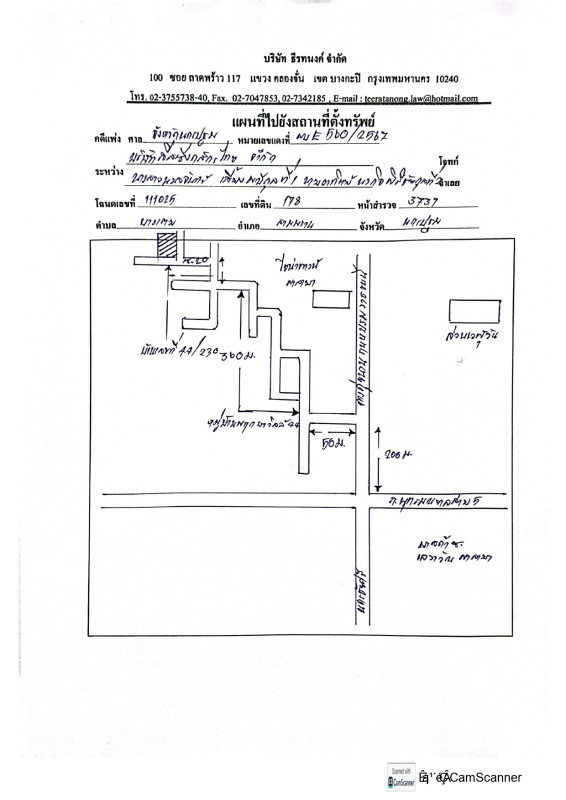 บริษัท ธีรทนงค์ จำกัด
100 ซอย ลาดพร้าว 117 แขวง คลองจั่น เขต บางกะปิ กรุงเทพมหานคร 10240
โทร. 02-3755738-40, Fax. 02-7047853, 02-7342185 , E-mail : teeratanong.law@hotmail.com
แผนที่ไปยังสถานที่ตั้งทรัพย์
คดีแพ่ง ศาล จังหวัดนครปฐม หมายเลขแดงที่ ผบE 560/2567
จำกัด โจทก์
ระหว่าง ที่ 1 จำเลย
โฉนดเลขที่ 111025 เลขที่ดิน 178 หน้าสำรวจ 3737
ตำบล บางเตย อำเภอ สามพราน จังหวัด นครปฐม
ซ.20
ไชน่าทาวน์
ศาลายา
บ้านเลขที่ 44/230
360 ม.
หมู่บ้านพฤกษาวิลล์ 44
50 ม.
200 ม.
ถ.พุทธมณฑลสาย 5
ศาลายา
นครชัยศรี
Scanned with
CamScanner
CamScanner